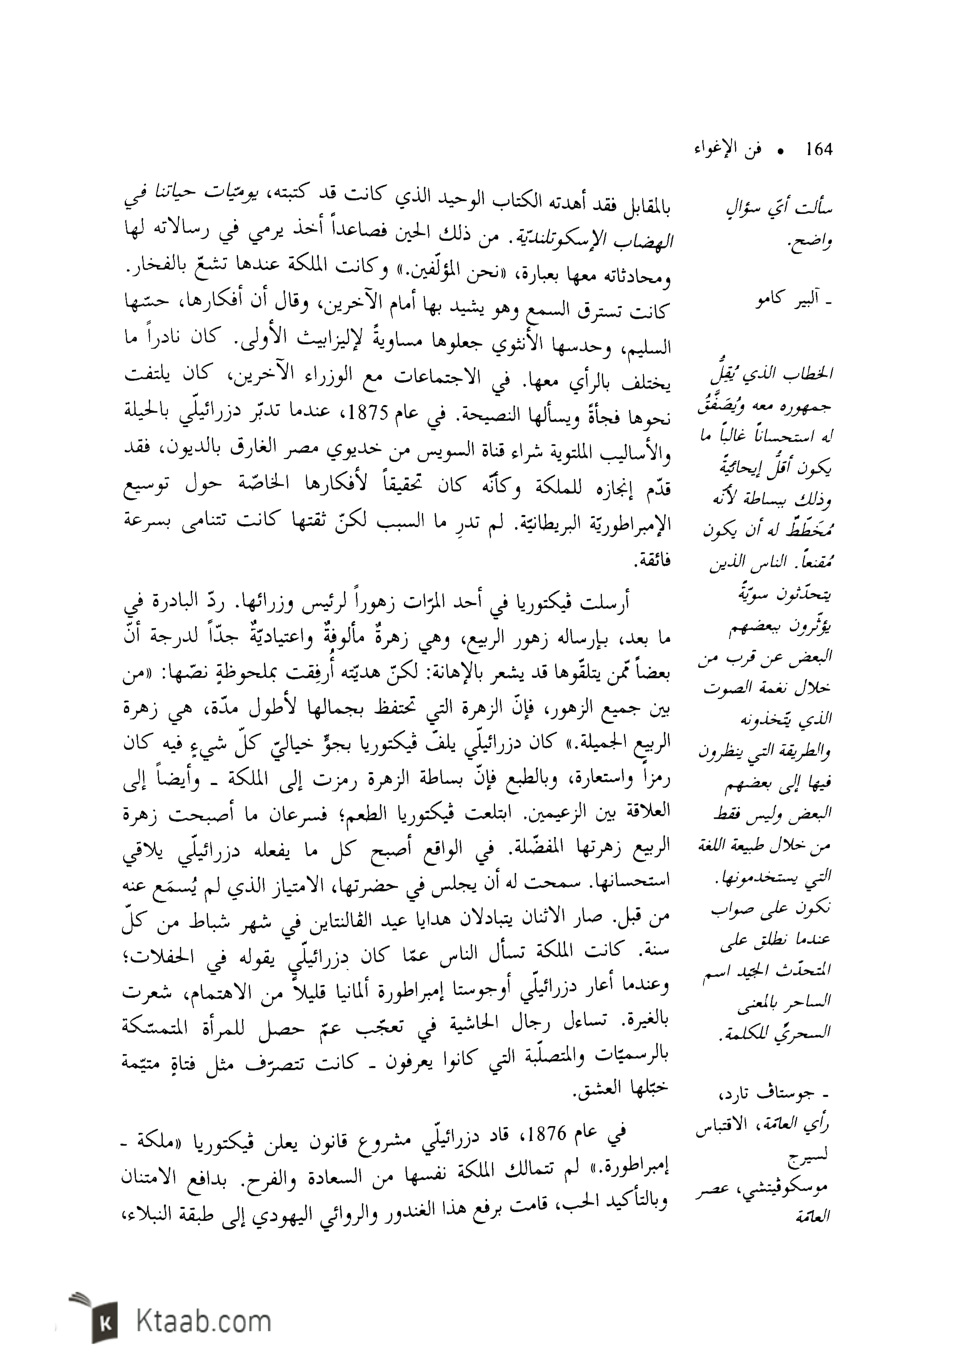 164 • فن الإغواء
بالمقابل فقد أهدته الكتاب الوحيد الذي كانت قد كتبته، يوميّات حياتنا في
الهضاب الإسكوتلنديّة. من ذلك الحين فصاعداً أخذ يرمي في رسالاته لها
ومحادثاته معها بعبارة، «نحن المؤلّفين.» وكانت الملكة عندها تشعّ بالفخار.
كانت تسترق السمع وهو يشيد بها أمام الآخرين، وقال أن أفكارها، حسّها
السليم، وحدسها الأنثوي جعلوها مساويةً لإليزابيث الأولى. كان نادراً ما
يختلف بالرأي معها. في الاجتماعات مع الوزراء الآخرين، كان يلتفت
نحوها فجأةً ويسألها النصيحة. في عام 1875، عندما تدبّر دزرائيلّي بالحيلة
والأساليب الملتوية شراء قناة السويس من خديوي مصر الغارق بالديون، فقد
قدّم إنجازه للملكة وكأنّه كان تحقيقاً لأفكارها الخاصّة حول توسيع
الإمبراطوريّة البريطانيّة. لم تدرِ ما السبب لكنّ ثقتها كانت تتنامى بسرعة
فائقة.
أرسلت ڤيكتوريا في أحد المرّات زهوراً لرئيس وزرائها. ردّ البادرة في
ما بعد، بإرساله زهور الربيع، وهي زهرةٌ مألوفةٌ واعتياديّةٌ جدّاً لدرجة أنّ
بعضاً ممّن يتلقّوها قد يشعر بالإهانة: لكنّ هديّته أُرفِقت بملحوظةٍ نصّها: «من
بين جميع الزهور، فإنّ الزهرة التي تحتفظ بجمالها لأطول مدّة، هي زهرة
الربيع الجميلة.» كان دزرائيلّي يلفّ ڤيكتوريا بجوٍّ خياليّ كلّ شيءٍ فيه كان
رمزاً واستعارة، وبالطبع فإنّ بساطة الزهرة رمزت إلى الملكة ـ وأيضاً إلى
العلاقة بين الزعيمين. ابتلعت ڤيكتوريا الطعم؛ فسرعان ما أصبحت زهرة
الربيع زهرتها المفضّلة. في الواقع أصبح كل ما يفعله دزرائيلّي يلاقي
استحسانها. سمحت له أن يجلس في حضرتها، الامتياز الذي لم يُسمَع عنه
من قبل. صار الاثنان يتبادلان هدايا عيد الڤالنتاين في شهر شباط من كلّ
سنة. كانت الملكة تسأل الناس عمّا كان دزرائيلّي يقوله في الحفلات؛
وعندما أعار دزرائيلّي أوجوستا إمبراطورة ألمانيا قليلاً من الاهتمام، شعرت
بالغيرة. تساءل رجال الحاشية في تعجّب عمّ حصل للمرأة المتمسّكة
بالرسميّات والمتصلّبة التي كانوا يعرفون ـ كانت تتصرّف مثل فتاةٍ متيّمة
خبّلها العشق.
في عام 1876، قاد دزرائيلّي مشروع قانون يعلن ڤيكتوريا «ملكة ـ
إمبراطورة.» لم تتمالك الملكة نفسها من السعادة والفرح. بدافع الامتنان
وبالتأكيد الحب، قامت برفع هذا الغندور والروائي اليهودي إلى طبقة النبلاء،
سألت أيّ سؤالٍ
واضح.
ـ آلبير كامو
الخطاب الذي يُقِلُّ
جمهوره معه ويُصَفَّقُ
له استحساناً غالباً ما
يكون أقلُّ إيحائيّةً
وذلك ببساطة لأنّه
مُخَطَّطٌ له أن يكون
مُقنعاً. الناس الذين
يتحدّثون سويّةً
يؤثّرون ببعضهم
البعض عن قرب من
خلال نغمة الصوت
الذي يتّخذونه
والطريقة التي ينظرون
فيها إلى بعضهم
البعض وليس فقط
من خلال طبيعة اللغة
التي يستخدمونها.
نكون على صواب
عندما نطلق على
المتحدّث الجيّد اسم
الساحر بالمعنى
السحريِّ للكلمة.
ـ جوستاڤ تارد،
رأي العامّة، الاقتباس
لسيرج
موسكوڤيتشي، عصر
العامّة
Ktaab.com